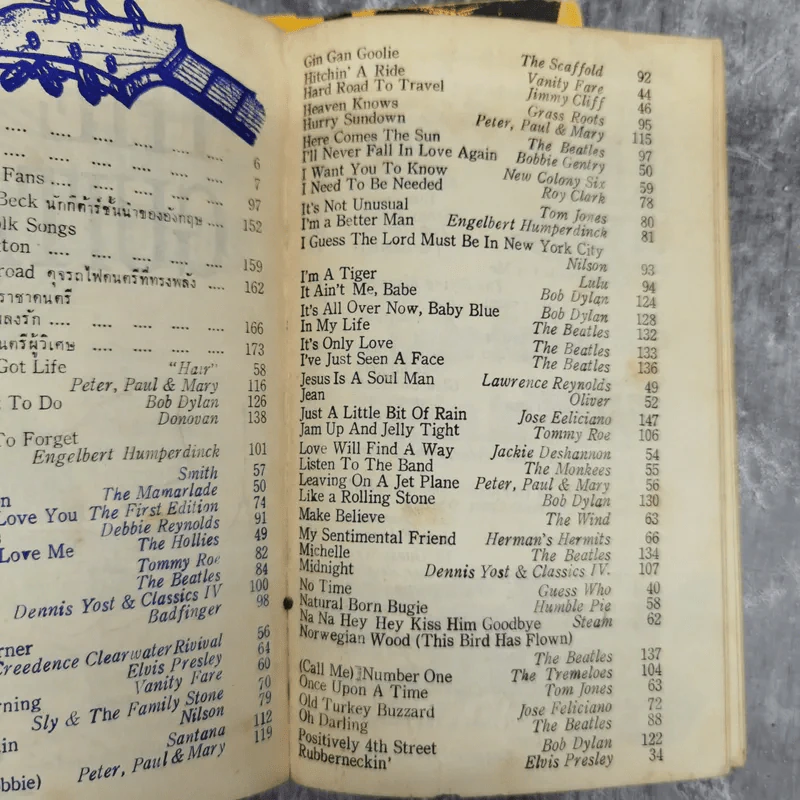 .... .... .... .... .... 6
.... .... .... .... .... 7
Fans .... .... .... .... 97
Beck นักกีต้าร์ชั้นนำของอังกฤษ .... 152
olk Songs
tton .... .... .... .... 159
road ตุจรถไฟดนตรีที่ทรงพลัง .... 162
ราชาดนตรี
พลงรัก .... .... .... .... 166
นตรีผู้วิเศษ .... .... .... 173
Got Life "Hair" 58
Peter, Paul & Mary 116
t To Do Bob Dylan 126
Donovan 138
To Forget
Engelbert Humperdinck 101
Smith 57
on The Mamarlade 50
Love You The First Edition 74
Debbie Reynolds 91
Love Me The Hollies 49
Tommy Roe 82
The Beatles 84
Dennis Yost & Classics IV 100
Badfinger 98
rner 56
Creedence Clearwater Rivival 64
Elvis Presley 60
Vanity Fare 70
rning Sly & The Family Stone 79
Nilson 112
ain Santana 119
Peter, Paul & Mary
obbie)
Gin Gan Goolie The Scaffold 92
Hitchin' A Ride Vanity Fare 44
Hard Road To Travel Jimmy Cliff 46
Heaven Knows Grass Roots 95
Hurry Sundown Peter, Paul & Mary 115
Here Comes The Sun The Beatles 97
I'll Never Fall In Love Again Bobbie Gentry 50
I Want You To Know New Colony Six 59
I Need To Be Needed Roy Clark 78
It's Not Unusual Tom Jones 80
I'm a Better Man Engelbert Humperdinck 81
I Guess The Lord Must Be In New York City
Nilson 93
I'm A Tiger Lulu 94
It Ain't Me, Babe Bob Dylan 124
It's All Over Now, Baby Blue Bob Dylan 128
In My Life The Beatles 132
It's Only Love The Beatles 133
I've Just Seen A Face The Beatles 136
Jesus Is A Soul Man Lawrence Reynolds 49
Jean Oliver 52
Just A Little Bit Of Rain Jose Eeliciano 147
Jam Up And Jelly Tight Tommy Roe 106
Love Will Find A Way Jackie Deshannon 54
Listen To The Band The Monkees 55
Leaving On A Jet Plane Peter, Paul & Mary 56
Like a Rolling Stone Bob Dylan 130
Make Believe The Wind 63
My Sentimental Friend Herman's Hermits 66
Michelle The Beatles 134
Midnight Dennis Yost & Classics IV. 107
No Time Guess Who 40
Natural Born Bugie Humble Pie 58
Na Na Hey Hey Kiss Him Goodbye Steam 62
Norwegian Wood (This Bird Has Flown)
The Beatles 137
(Call Me) Number One The Tremeloes 104
Once Upon A Time Tom Jones 63
Old Turkey Buzzard Jose Feliciano 72
Oh Darling The Beatles 88
Positively 4th Street Bob Dylan 122
Rubberneckin' Elvis Presley 34